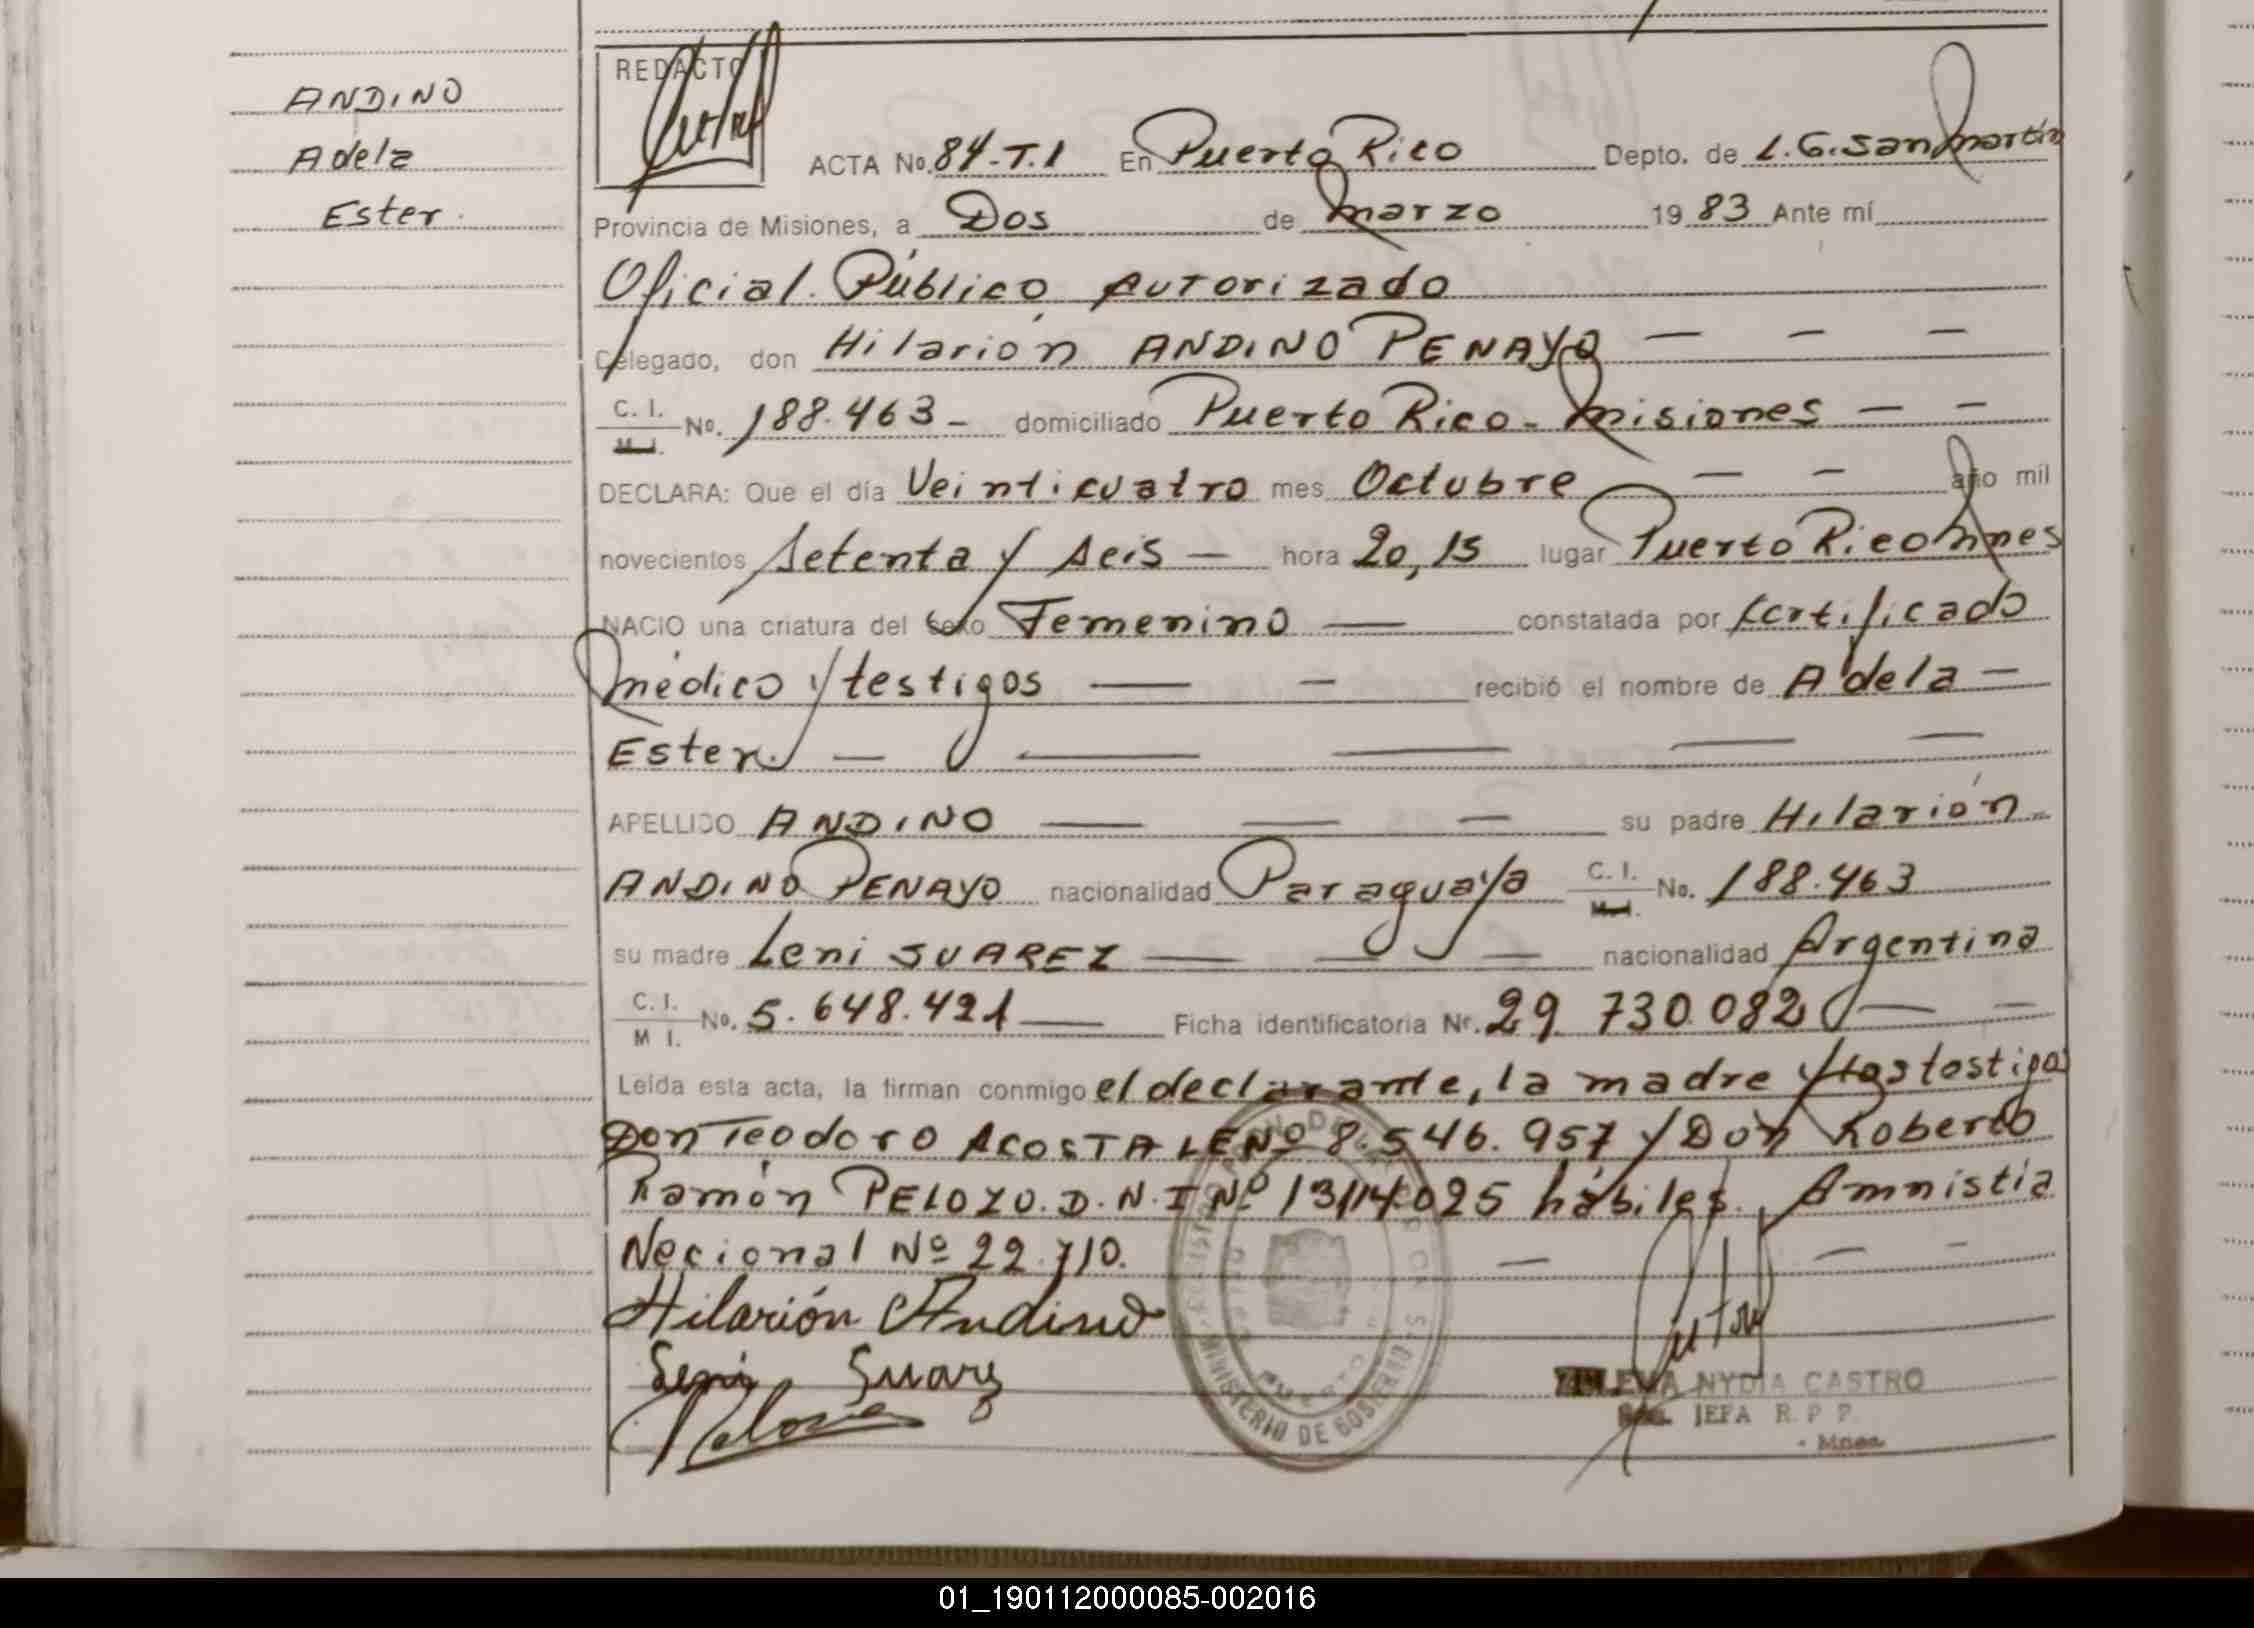 ANDINO
Adela
Ester.
REDACTO
ACTA No. 84-T.1 En Puerto Rico Depto. de L.G.San Martin
Provincia de Misiones, a Dos de marzo 1983 Ante mí
Oficial Público Autorizado
Delegado, don Hilarión ANDINO PENAYO — — —
C. I. M. I. No. 188.463 - domiciliado Puerto Rico - Misiones — —
DECLARA: Que el día Veinticuatro mes Octubre — — año mil
novecientos Setenta y Seis — hora 20,15 lugar Puerto Rico Mnes
NACIO una criatura del sexo Femenino — constatada por Certificado
médico y testigos — — recibió el nombre de Adela —
Ester. — — — — —
APELLIDO ANDINO — — — su padre Hilarión
ANDINO PENAYO nacionalidad Paraguaya C. I. M. I. No. 188.463
su madre Leni SUAREZ — — — nacionalidad Argentina
C. I. M I. No. 5.648.421 — Ficha identificatoria Nr. 29 730.082 — —
Leída esta acta, la firman conmigo el declarante, la madre y los testigos
Don Teodoro ACOSTA LE Nº 8.546.957 y Don Roberto
Ramón PELOZO. D.N.I Nº 13114.025 hábiles. Amnistia
Necional Nº 22.710. — — —
Hilarión Andino
Leni Suarez
MINISTERIO DE GOBIERNO
PUERTO
NYDIA CASTRO
JEFA R. P. P.
- Mnes.
01_190112000085-002016